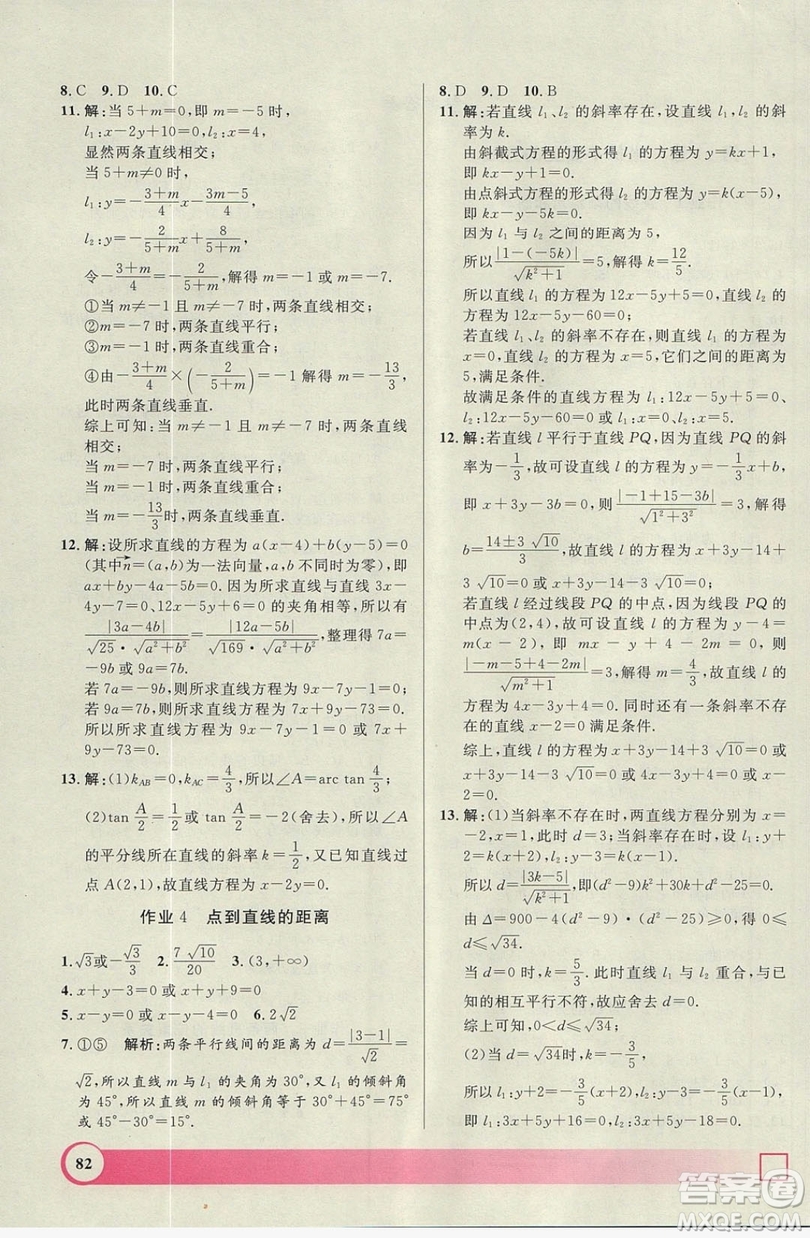 8. C　9. D　10. C
11. 解:当 5+m=0,即 m=-5 时,
l₁:x-2y+10=0,l₂:x=4,
显然两条直线相交;
当 5+m≠0 时,
l₁:y=-\frac{3+m}{4}x-\frac{3m-5}{4},
l₂:y=-\frac{2}{5+m}x+\frac{8}{5+m},
令-\frac{3+m}{4}=-\frac{2}{5+m},解得 m=-1 或 m=-7.
①当 m≠-7 且 m≠-1 时,两条直线相交;
②m=-7 时,两条直线平行;
③m=-1 时,两条直线重合;
④由-\frac{3+m}{4}×(-\frac{2}{5+m})=-1 解得 m=-\frac{13}{3},
此时两条直线垂直.
综上可知:当 m≠-7 且 m≠-1 时,两条直线
相交;
当 m=-7 时,两条直线平行;
当 m=-1 时,两条直线重合;
当 m=-\frac{13}{3}时,两条直线垂直.
12. 解:设所求直线的方程为 a(x-4)+b(y-5)=0
(其中\vec{n}=(a,b)为一法向量,a,b 不同时为零),即
ax+by-4a-5b=0. 因为所求直线与直线 3x-
4y-7=0、12x-5y+6=0 的夹角相等,所以有
\frac{|3a-4b|}{\sqrt{25}·\sqrt{a²+b²}}=\frac{|12a-5b|}{\sqrt{169}·\sqrt{a²+b²}},整理得 7a=
-9b 或 9a=7b.
若 7a=-9b,则所求直线方程为 9x-7y-1=0;
若 9a=7b,则所求直线方程为 7x+9y-73=0.
所以所求直线方程为 9x-7y-1=0 或 7x+
9y-73=0.
13. 解:(1)k_{AB}=0,k_{AC}=\frac{4}{3},所以∠A=arc tan\frac{4}{3};
(2)tan\frac{A}{2}=\frac{1}{2}或 tan\frac{A}{2}=-2(舍去),所以∠A
的平分线所在直线的斜率 k=\frac{1}{2},又已知直线过
点 A(2,1),故直线方程为 x-2y=0.
作业 4　点到直线的距离
1. \sqrt{3}或-\frac{\sqrt{3}}{3}　2. \frac{7\sqrt{10}}{20}　3. (3,+∞)
4. x+y-3=0 或 x+y+9=0
5. x-y=0 或 x-y-4=0　6. 2\sqrt{2}
7. ①⑤　解析:两条平行线间的距离 d=\frac{|3-1|}{\sqrt{2}}=
\sqrt{2},所以直线 m 与 l₁ 的夹角为 30°,又 l₁ 的倾斜角
为 45°,所以直线 m 的倾斜角等于 30°+45°=75°
或 45°-30°=15°.
8. D　9. D　10. B
11. 解:若直线 l₁、l₂ 的斜率存在,设直线 l₁、l₂ 的斜
率为 k.
由斜截式方程的形式得 l₁ 的方程为 y=kx+1,
即 kx-y+1=0.
由点斜式方程的形式得 l₂ 的方程为 y=k(x-5),
即 kx-y-5k=0.
因为 l₁ 与 l₂ 之间的距离为 5,
所以\frac{|1-(-5k)|}{\sqrt{k²+1}}=5,解得 k=\frac{12}{5}.
所以直线 l₁ 的方程为 12x-5y+5=0,直线 l₂ 的
方程为 12x-5y-60=0.
若直线 l₁、l₂ 的斜率不存在,则直线 l₁ 的方程为
x=0,直线 l₂ 的方程为 x=5,它们之间的距离为
5,满足条件.
故满足条件的直线方程为 l₁:12x-5y+5=0、
l₂:12x-5y-60=0 或 l₁:x=0、l₂:x=5.
12. 解:若直线 l 平行于直线 PQ,因为直线 PQ 的斜
率为-\frac{1}{3},故可设直线 l 的方程为 y=-\frac{1}{3}x+b,
即 x+3y-3b=0,则\frac{|-1+15-3b|}{\sqrt{1²+3²}}=3,解得
b=\frac{14±3\sqrt{10}}{3},故直线 l 的方程为 x+3y-14+
3\sqrt{10}=0 或 x+3y-14-3\sqrt{10}=0.
若直线 l 经过线段 PQ 的中点,因为线段 PQ 的
中点为(2,4),故可设直线 l 的方程为 y-4=
m(x-2),即 mx-y+4-2m=0,则
\frac{|-m-5+4-2m|}{\sqrt{m²+1}}=3,解得 m=\frac{4}{3},故直线 l 的
方程为 4x-3y+4=0. 同时还有一条斜率不存
在的直线 x-2=0 满足条件.
综上,直线 l 的方程为 x+3y-14+3\sqrt{10}=0、
x+3y-14-3\sqrt{10}=0、4x-3y+4=0 或 x-2=0.
13. 解:(1)当斜率不存在时,两直线方程分别为 x=
-2,x=1,此时 d=3;当斜率存在时,设 l₁:y+
2=k(x-1),l₂:y-3=k(x+2),
所以 d=\frac{|3k-5|}{\sqrt{k²+1}},即(d²-9)k²+30k+d²-25=0,
由 Δ=900-4(d²-9)(d²-25)≥0,得 0≤
d≤\sqrt{34}.
当 d=0 时,k=-\frac{5}{3},此时直线 l₁ 与 l₂ 重合,与已
知的相互平行不符,故应舍去 d=0.
综上可知,0<d≤\sqrt{34};
(2)当 d=\sqrt{34}时,k=-\frac{3}{5},
所以 l₁:y+2=-\frac{3}{5}(x-1),l₂:y-3=-\frac{3}{5}(x+2),
即 l₁:3x+5y+7=0,l₂:3x+5y-9=0.
82
答案圈
MXQE.COM